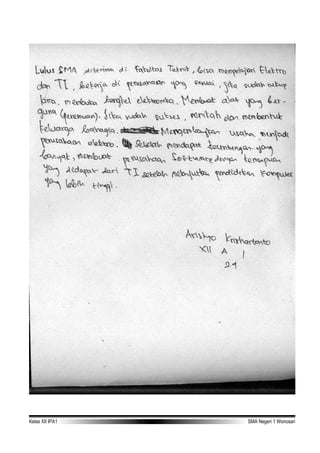 Lulus SMA diterima di Fakultas Teknik, bisa mempelajari Elektro
dan TI, bekerja di perusahaan yang sesuai, jika sudah cukup
dana, membuka bengkel elektronika. Membuat alat yang ber-
guna (penemuan). Jika sudah sukses, menikah dan membentuk
keluarga bahagia Mengembangkan usaha menjadi
perusahaan elektro. Setelah mendapat keuntungan yang
banyak, membuat perusahaan Software dengan kemampuan
yang didapat dari TI setelah melanjutkan pendidikan Komputer
yang lebih tinggi.
Aristyo Krishartanto
XII A 1
Kelas XII IPA1
SMA Negeri 1 Wonosari